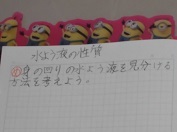 水よう液の性質
身の回りの水よう液を見分ける
方法を考えよう。